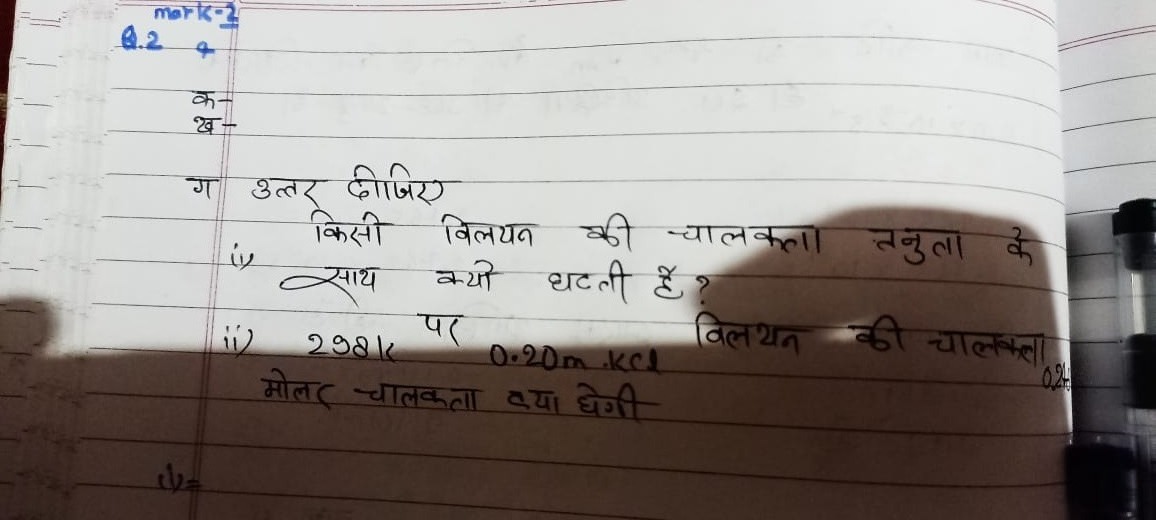 mark-2
Q.2 
क-
ख-
ग उत्तर दीजिए
i) किसी विलयन की चालकता तनुता के
साथ क्यों घटती है?
ii) 298K पर 0.20m.KCl विलयन की चालकता
मोलर चालकता क्या होगी
i)=